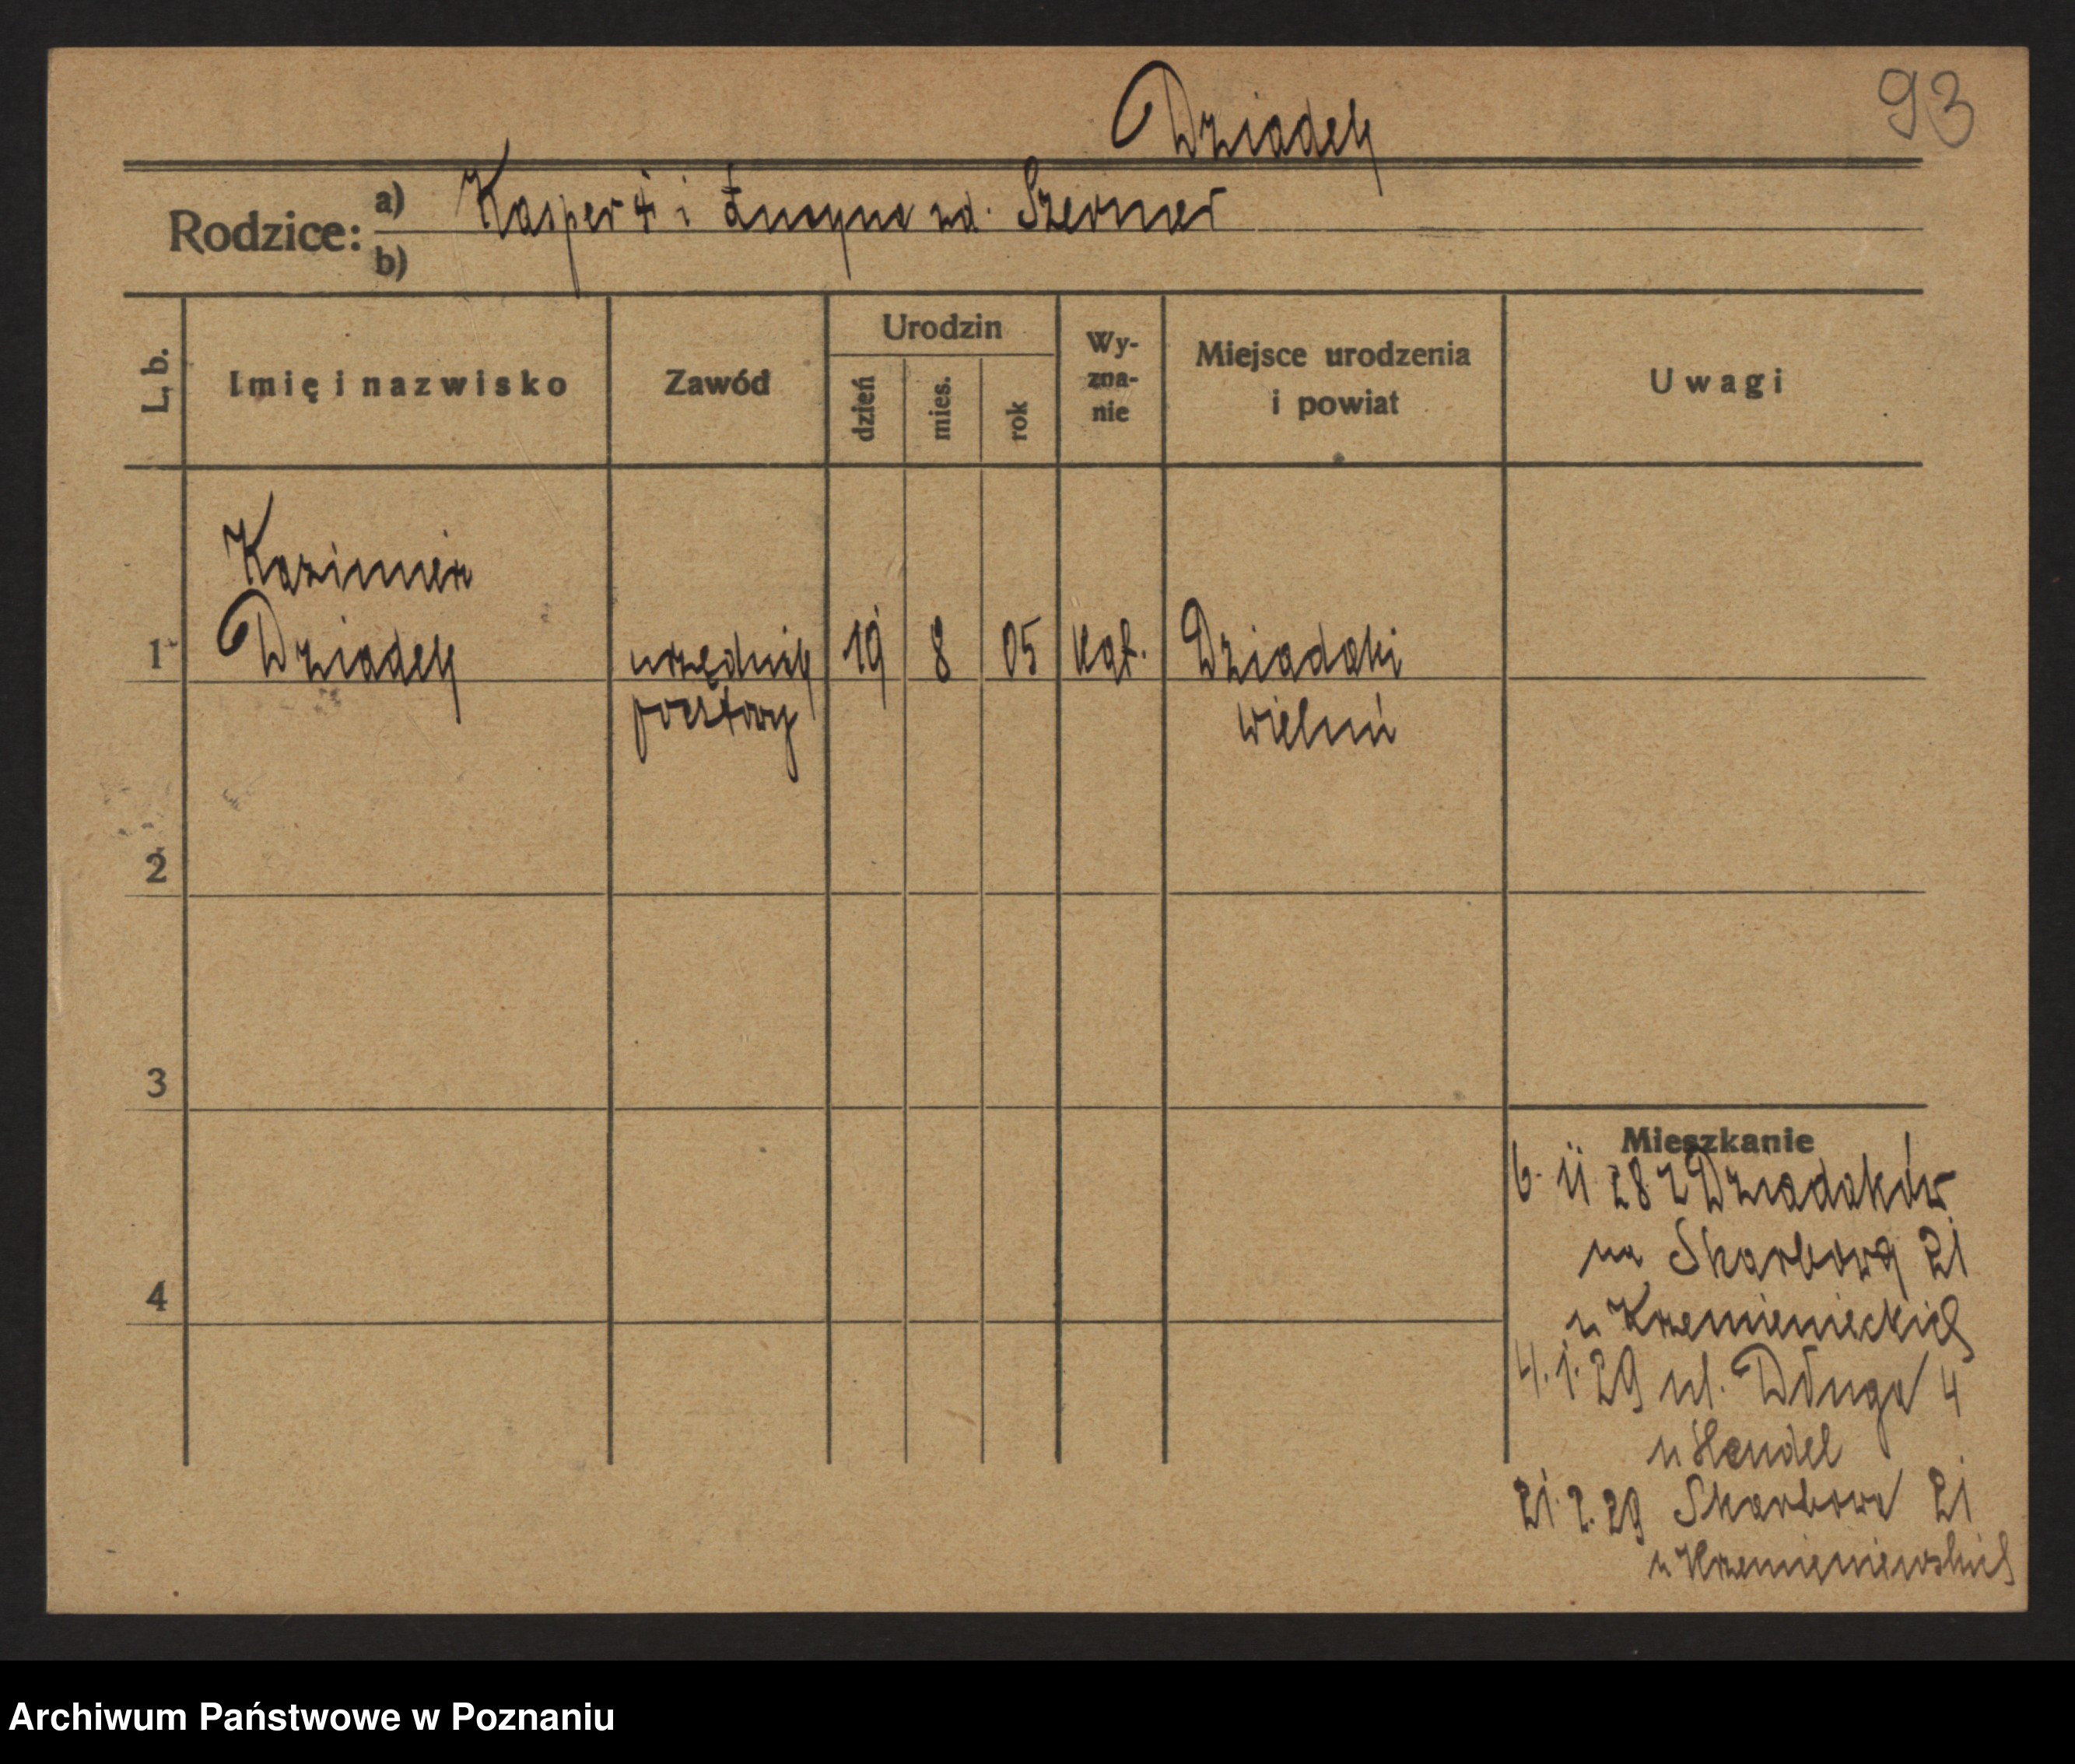 93
Dziadek
Rodzice: a) Kasper i Łucyna zd. Szermer
b)
L. b. Imię i nazwisko Zawód Urodzin dzień mies. rok Wy-zna-nie Miejsce urodzenia i powiat Uwagi
Kazimierz
1 Dziadek urzędnik 19 8 05 kat. Dziadaki
pocztowy Wieluń
2
3
4
Mieszkanie
6. 11 28 z Dziadaków
na Skarbową 21
u Krzemienieckich
4. 1. 29 ul. Długa 4
u Hendel
21. 2. 29 Skarbowa 21
u Krzemieniewskich
Archiwum Państwowe w Poznaniu